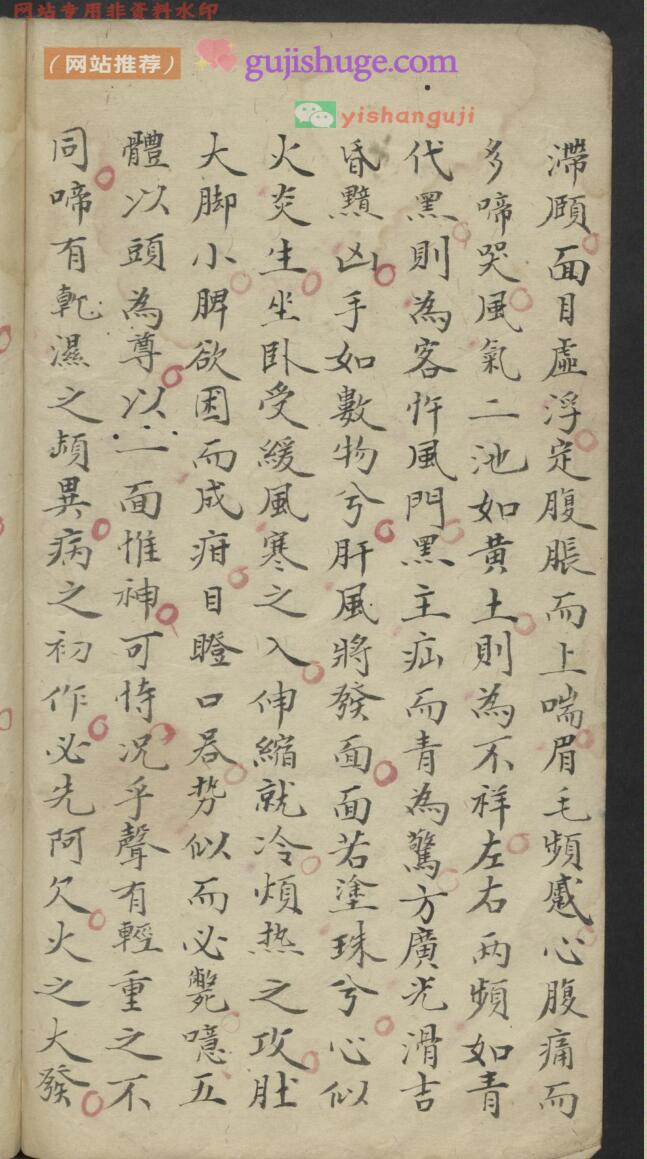 网站专用非资料水印
（网站推荐）
gujishuge.com
yishanguji
滯頤面目虛浮定腹脹而上喘眉毛頻蹙心腹痛而
多啼哭風氣二池如黃土則為不祥左右兩頻如青
代黑則為客忤風門黑主疝而青為驚方廣光滑吉
昏黯凶手如數物兮肝風將發面面若塗珠兮心似
火炎生坐卧受緩風寒之入伸縮就冷煩热之攻肚
大脚小脾欲困而成疳目瞪口呆势似而必斃噫五
體以頭為尊以一面惟神可恃况乎聲有輕重之不
同啼有乾濕之頻異病之初作必先阿欠火之大發